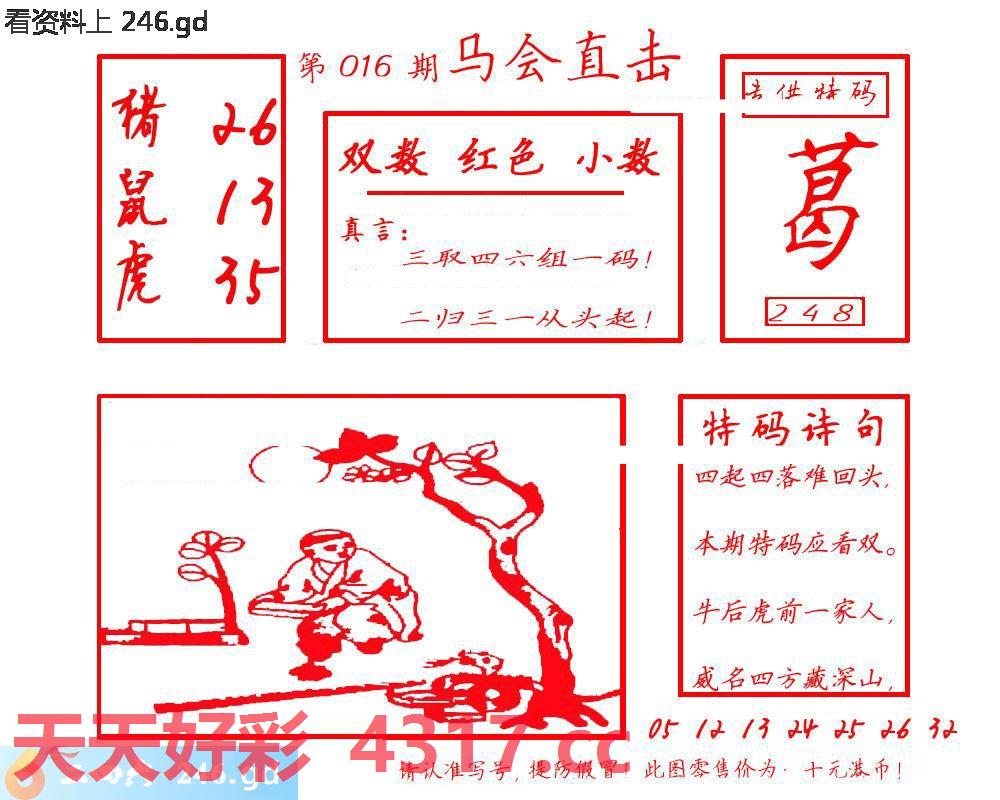 看资料上 246.gd
第 016 期 马会直击
猪 26
鼠 13
虎 35
双数 红色 小数
真言：
三取四六组一码！
二归三一从头起！
供特码
葛
248
特码诗句
四起四落难回头，
本期特码应看双。
牛后虎前一家人，
威名四方藏深山，
05 12 13 24 25 26 32
天天好彩 4317.cc
246.gd
请认准写号，提防假冒！此图零售价为：十元港币！